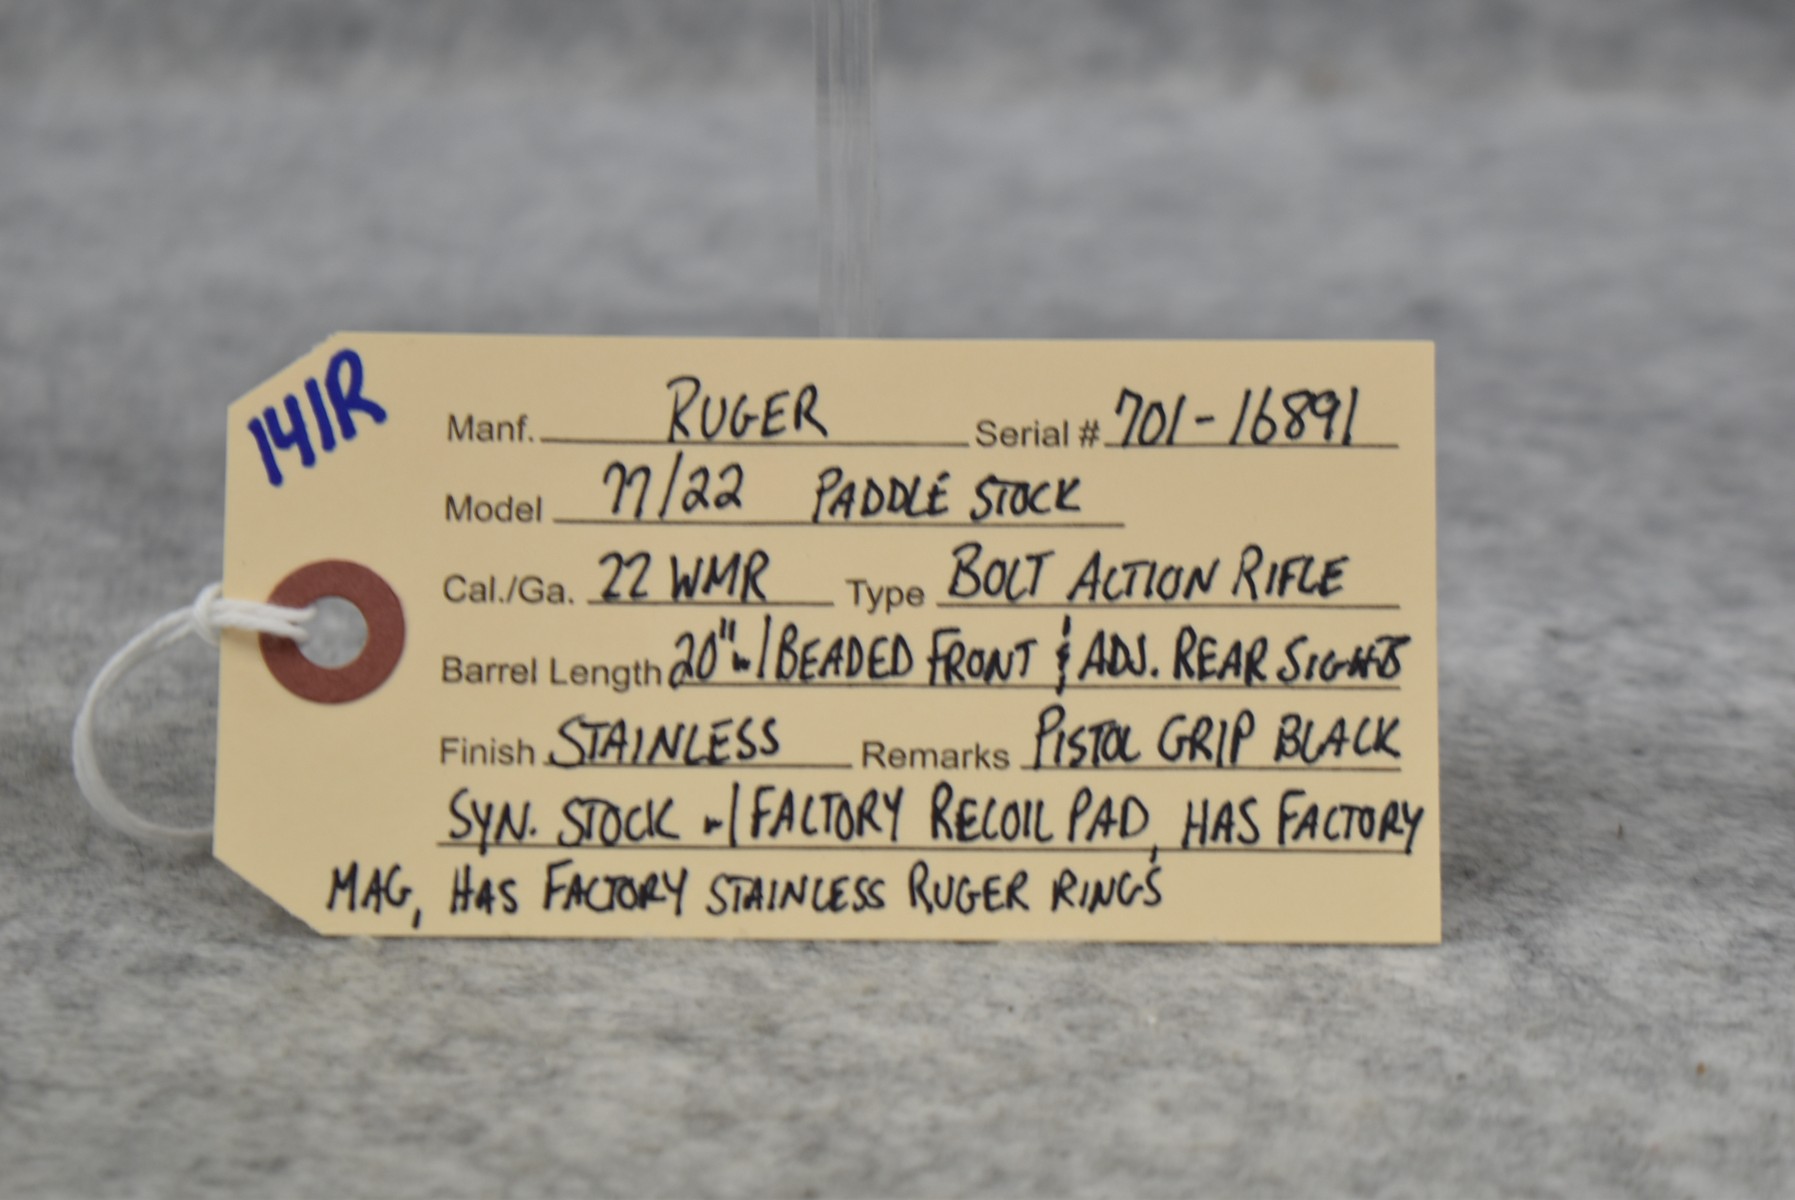 141R
Manf. RUGER Serial # 701-16891
Model 77/22 PADDLE STOCK
Cal./Ga. 22 WMR Type BOLT ACTION RIFLE
Barrel Length 20" w/ BEADED FRONT & ADJ. REAR SIGHTS
Finish STAINLESS Remarks PISTOL GRIP BLACK
SYN. STOCK w/ FACTORY RECOIL PAD, HAS FACTORY
MAG, HAS FACTORY STAINLESS RUGER RINGS